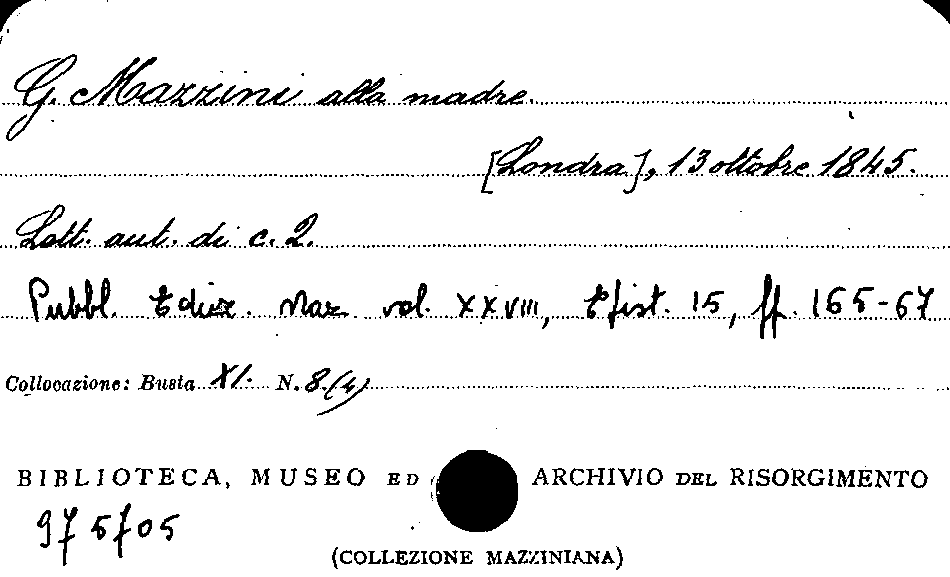 G. Mazzini alla madre.
[Londra], 13 ottobre 1845.
Lett. aut. di c. 2.
Pubbl. Ediz. Naz. vol. XXVIII, Epist. 15, pp. 165-67
Collocazione: Busta XI. N. 8.(4)
BIBLIOTECA, MUSEO ED ARCHIVIO DEL RISORGIMENTO
975705
(COLLEZIONE MAZZINIANA)